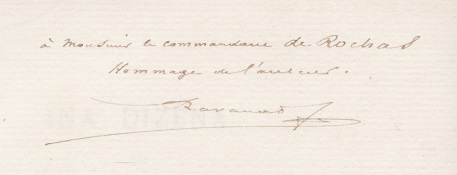 à Monsieur le commandant de Rochas
Hommage de l'auteur.